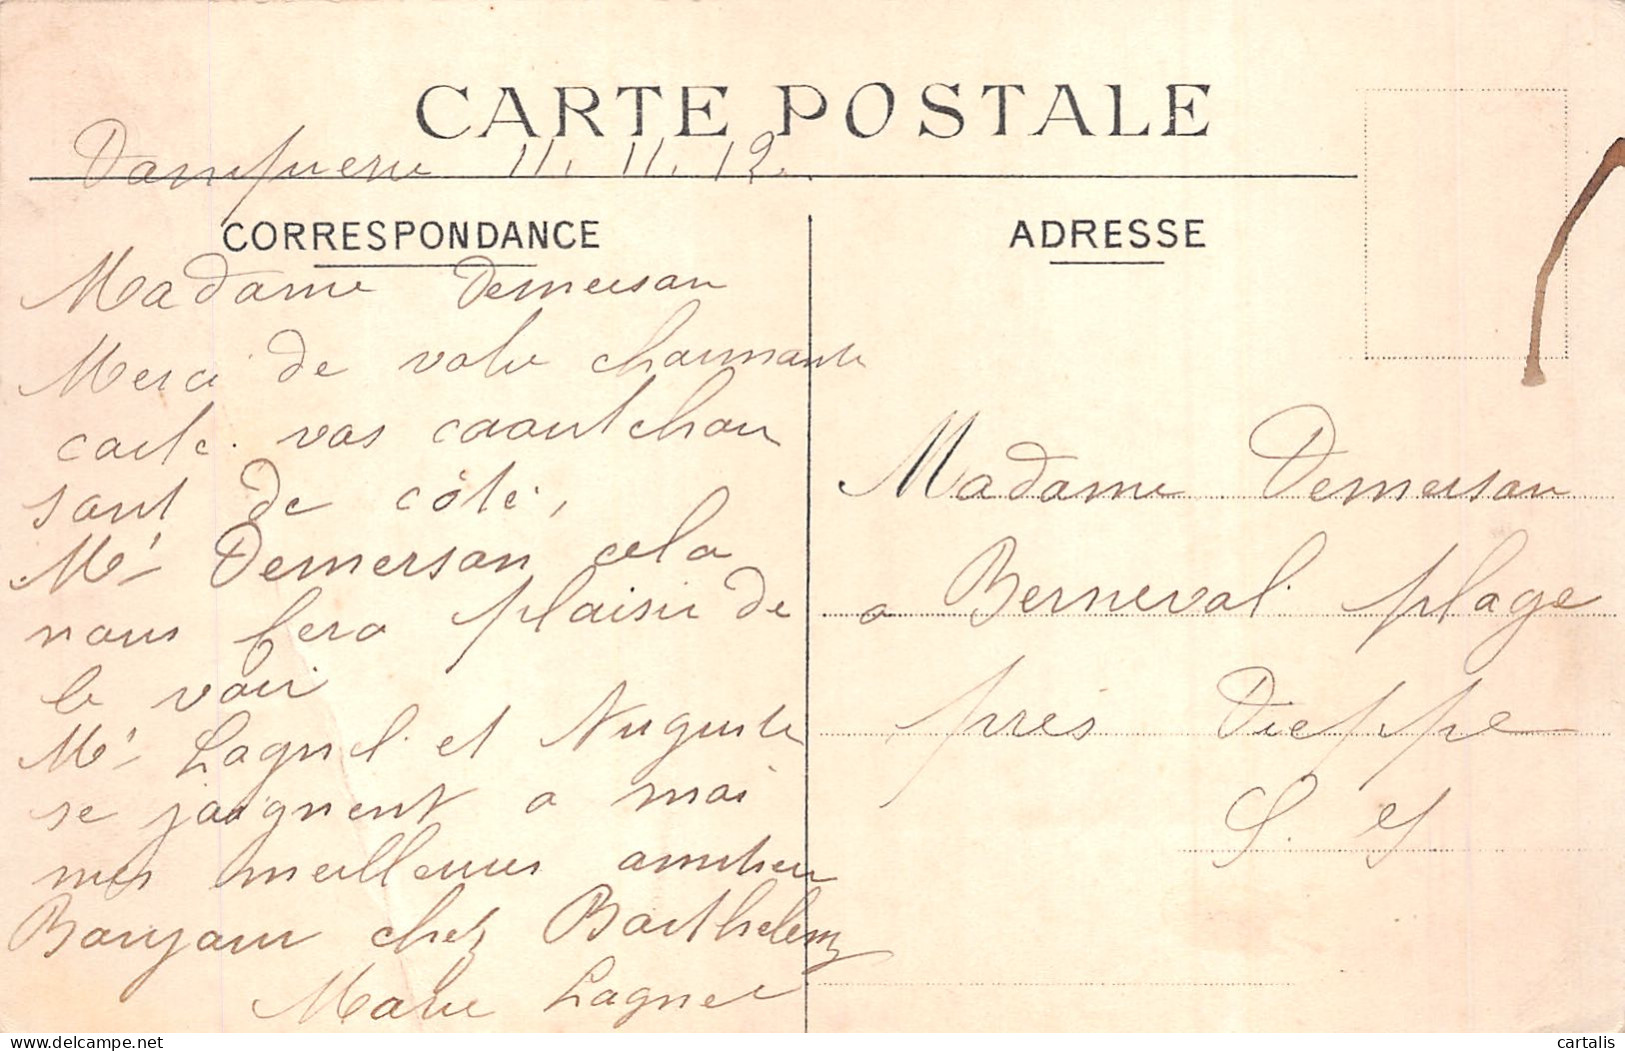 CARTE POSTALE
Dampierre 11. 11. 12.
CORRESPONDANCE
Madame Demerson
Merci de votre charmante
carte. vos caoutchou
sont de côté,
Mr Demerson cela
nous fera plaisir de
le voir
Mr Lagnel et Auguste
se joignent a moi
mes meilleures amities
Bonjour chez Barthelemy
Marie Lagnel
ADRESSE
Madame Demerson
a Berneval plage
près Dieppe
S. I.
cartalis